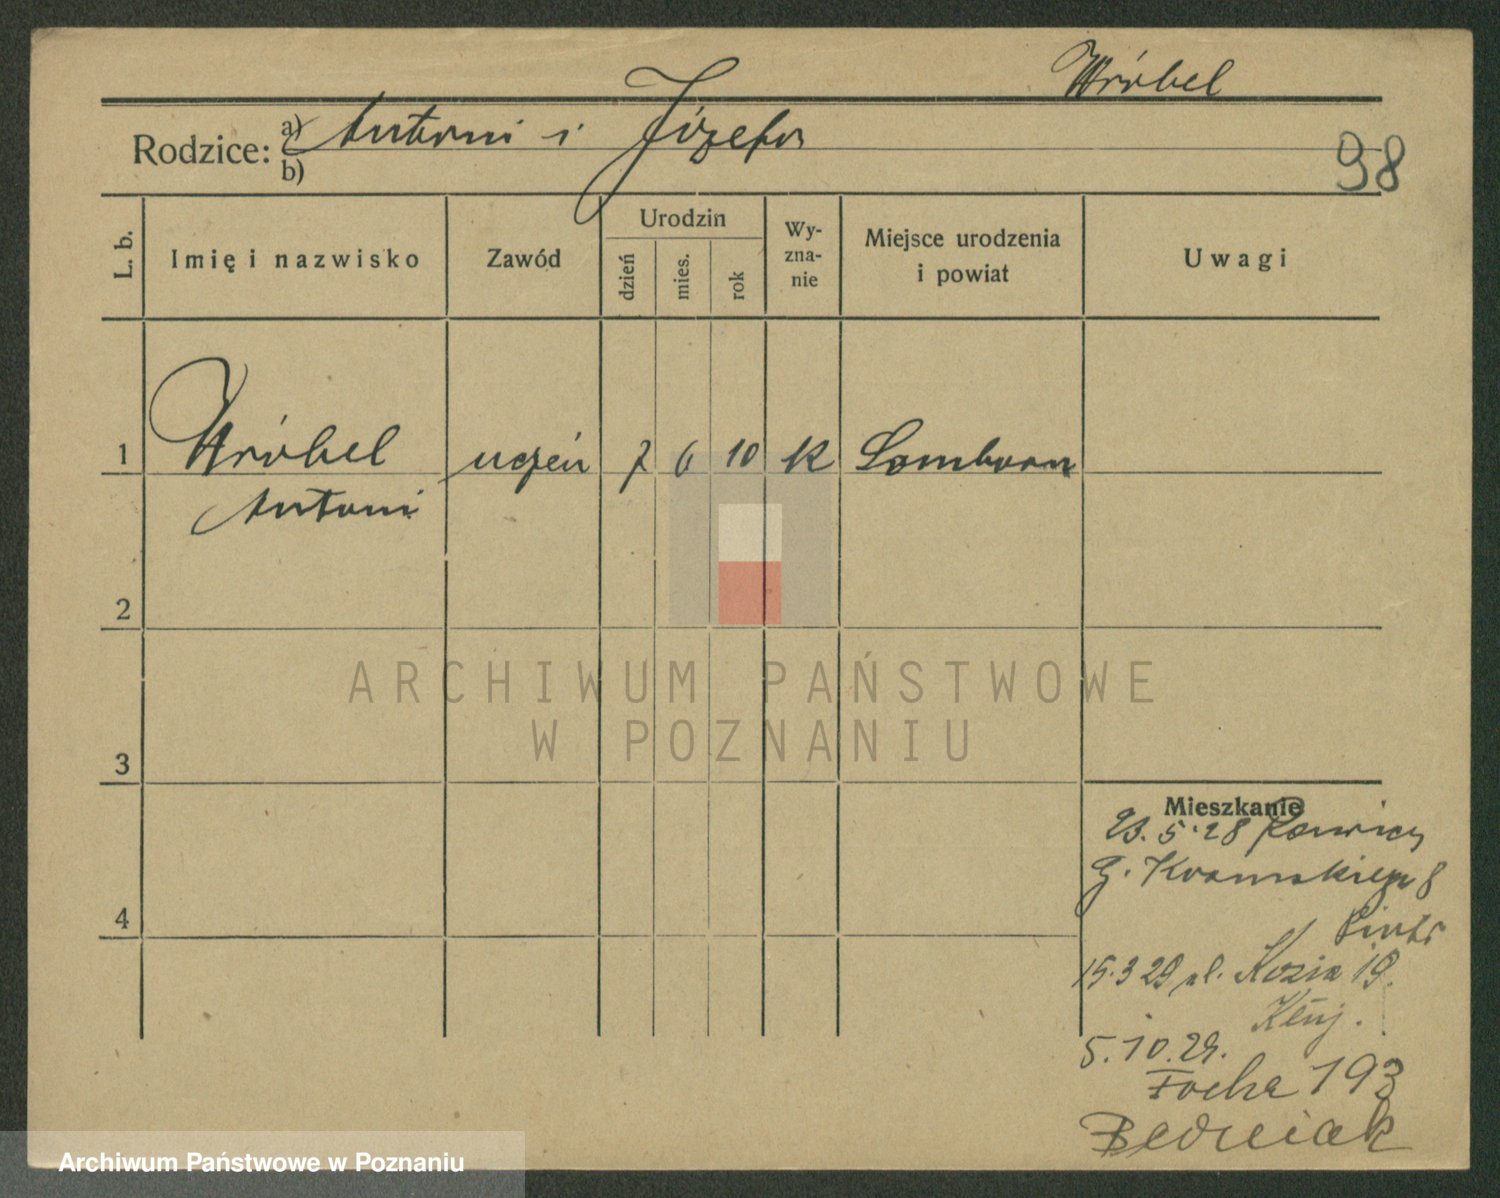 Wróbel
Rodzice: a) Antoni i Józefa
b)
98
L. b.
Imię i nazwisko
Zawód
Urodzin
dzień
mies.
rok
Wy-
zna-
nie
Miejsce urodzenia
i powiat
Uwagi
1 Wróbel uczeń 7 6 10 K
Antoni
2
3
4
ARCHIWUM PAŃSTWOWE
W POZNANIU
Mieszkanie
23.5.28
8
15.3 29 ul. Kozia 19.
5.10.29.
Focha 193
Bedniak
Archiwum Państwowe w Poznaniu